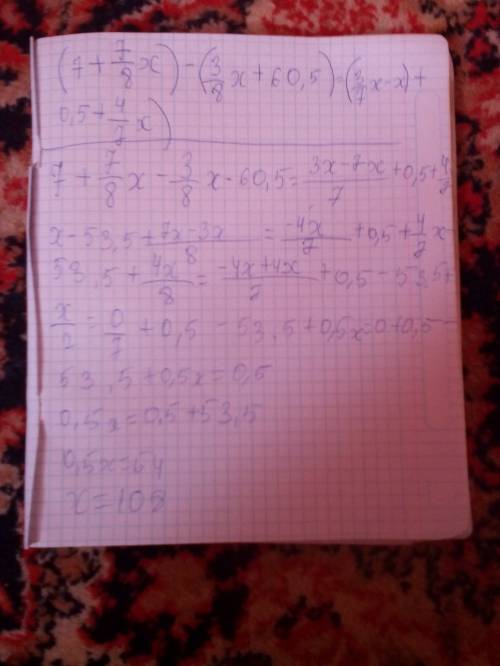 (7 + 7/8 x) - (3/8 x + 60,5) = (3/7 x - x) +
0,5 + 4/7 x)
7 + 7/8 x - 3/8 x - 60,5 = 3x-7x/7 + 0,5 + 4/7
x - 53,5 + 7x-3x/8 = -4x/7 + 0,5 + 4/7 x -
53,5 + 4x/8 = -4x+4x/7 + 0,5 - 53,5 +
x/2 = 0/7 + 0,5 - 53,5 + 0,5x = 0 + 0,5 -
53,5 + 0,5x = 0,5
0,5x = 0,5 + 53,5
0,5x = 54
x = 108